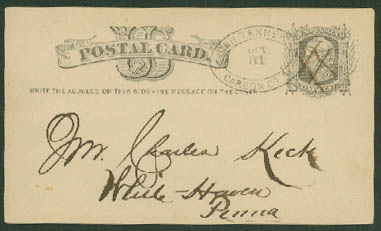 POSTAL CARD.
TANNER
OCT
31
CARBON CO
WRITE THE ADDRESS ON THIS SIDE - THE MESSAGE ON THE OTHER
Mr. Charles Keck
White-Haven
Penna